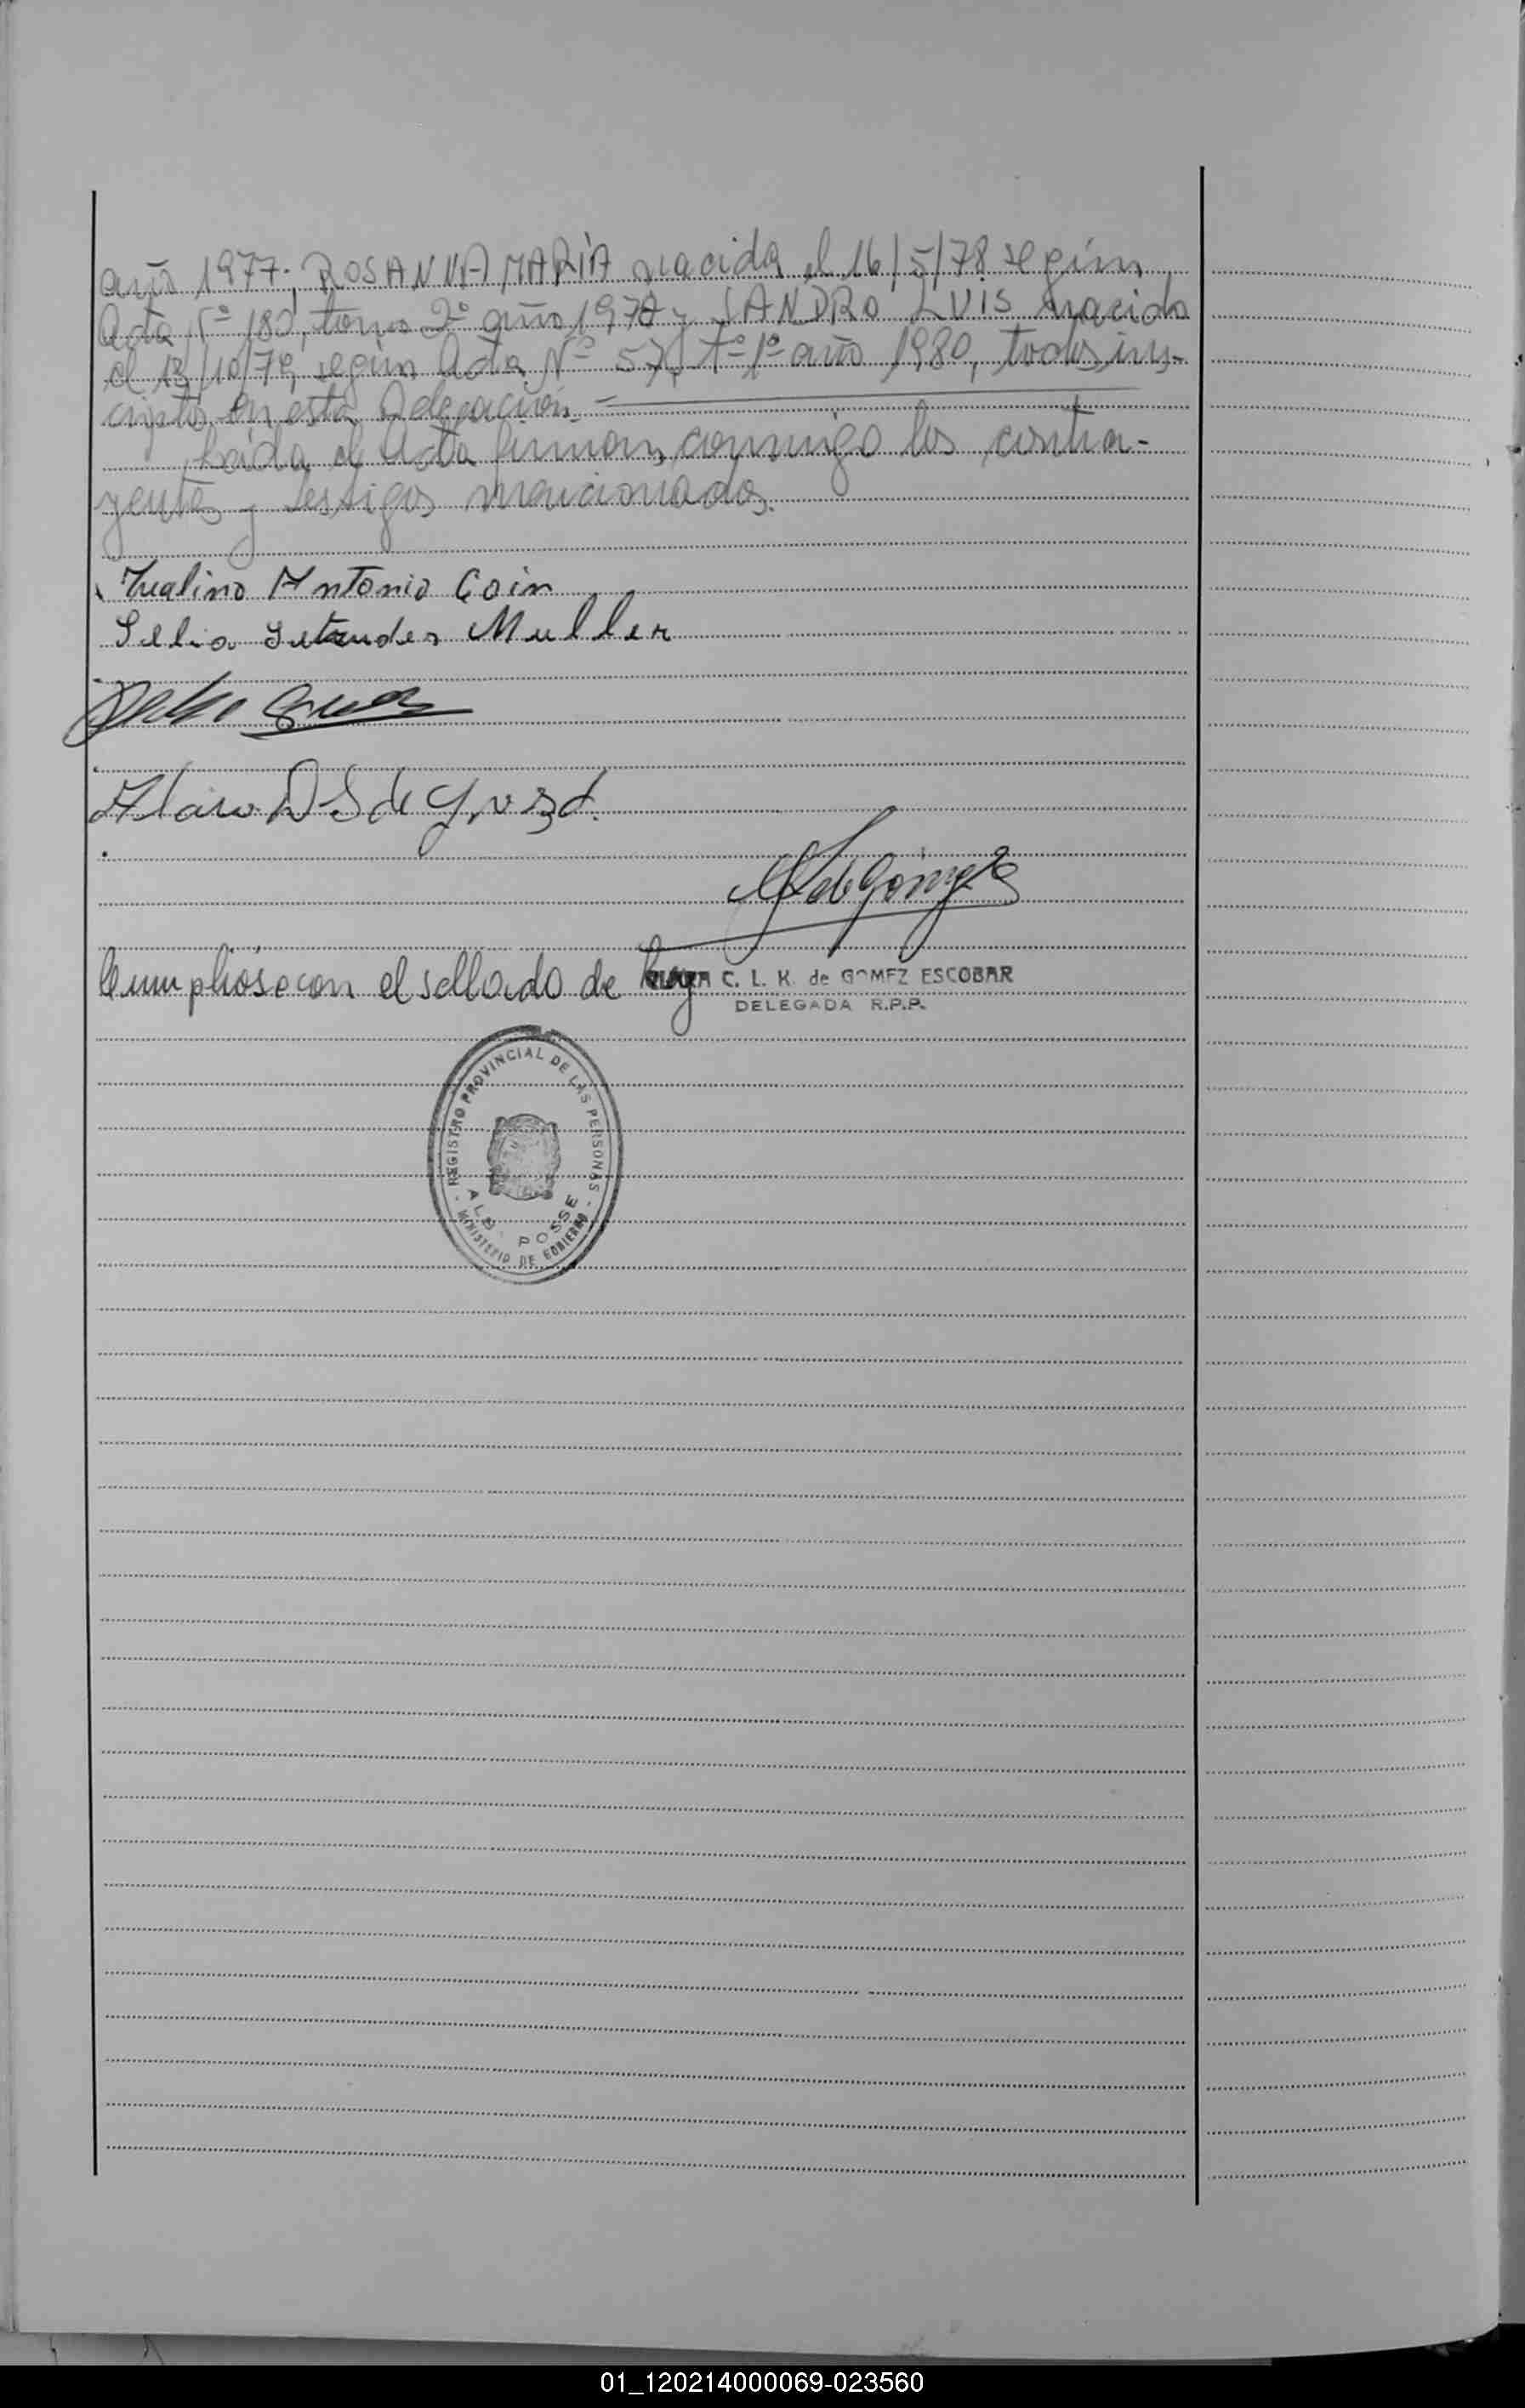 año 1977; ROSANNA MARÍA nacida el 16/5/78 según
Acta Nº 180, tomo 2º año 1978 y SANDRO LUIS nacido
el 13/10/79, según Acta Nº 57, Tº 1º año 1980, todos ins-
criptos en esta Delegación.=
Leída el Acta firman conmigo los contra-
yentes y testigos mencionados.
Antonio Goin
Muller
de
de Gómez
Cumplióse con el sellado de ley
C. L. K. de GOMEZ ESCOBAR
DELEGADA R.P.P.
REGISTRO PROVINCIAL DE LAS PERSONAS
ALM. POSSE
MINISTERIO DE GOBIERNO
01_120214000069-023560